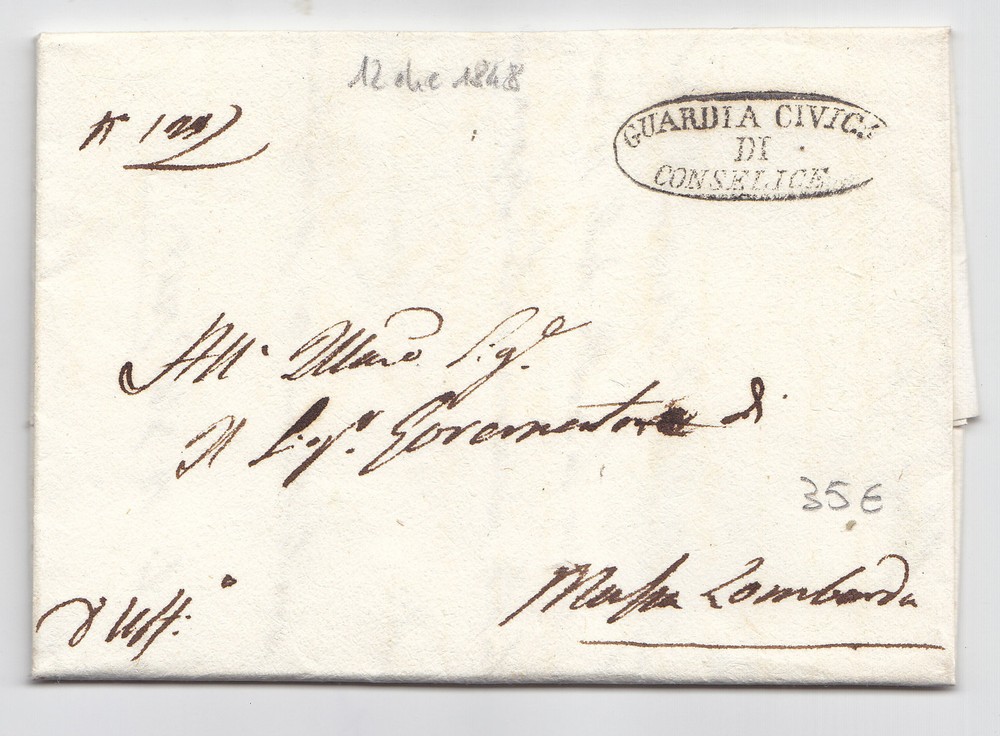 12 dic 1848
GUARDIA CIVICA
DI
CONSELICE
All' Illmo Sigr.
Il Sigr. Governatore di
35 €
Massa Lombarda
d'Uffo.